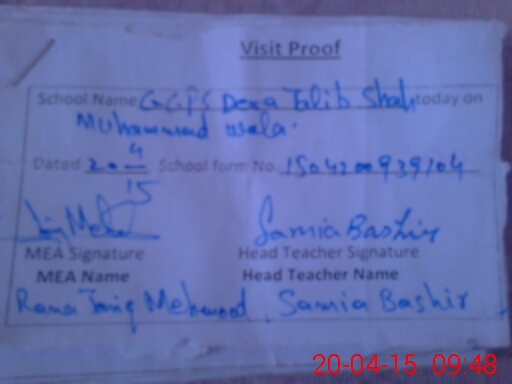 Visit Proof
School Name GGPS Dera Talib Shah today on
Muhammad wala.
Dated 20-4-15 School form No. 1504200939104
MEA Signature Samia Bashir
Head Teacher Signature
MEA Name Head Teacher Name
Rana Tariq Mehmood Samia Bashir
20-04-15 09:48